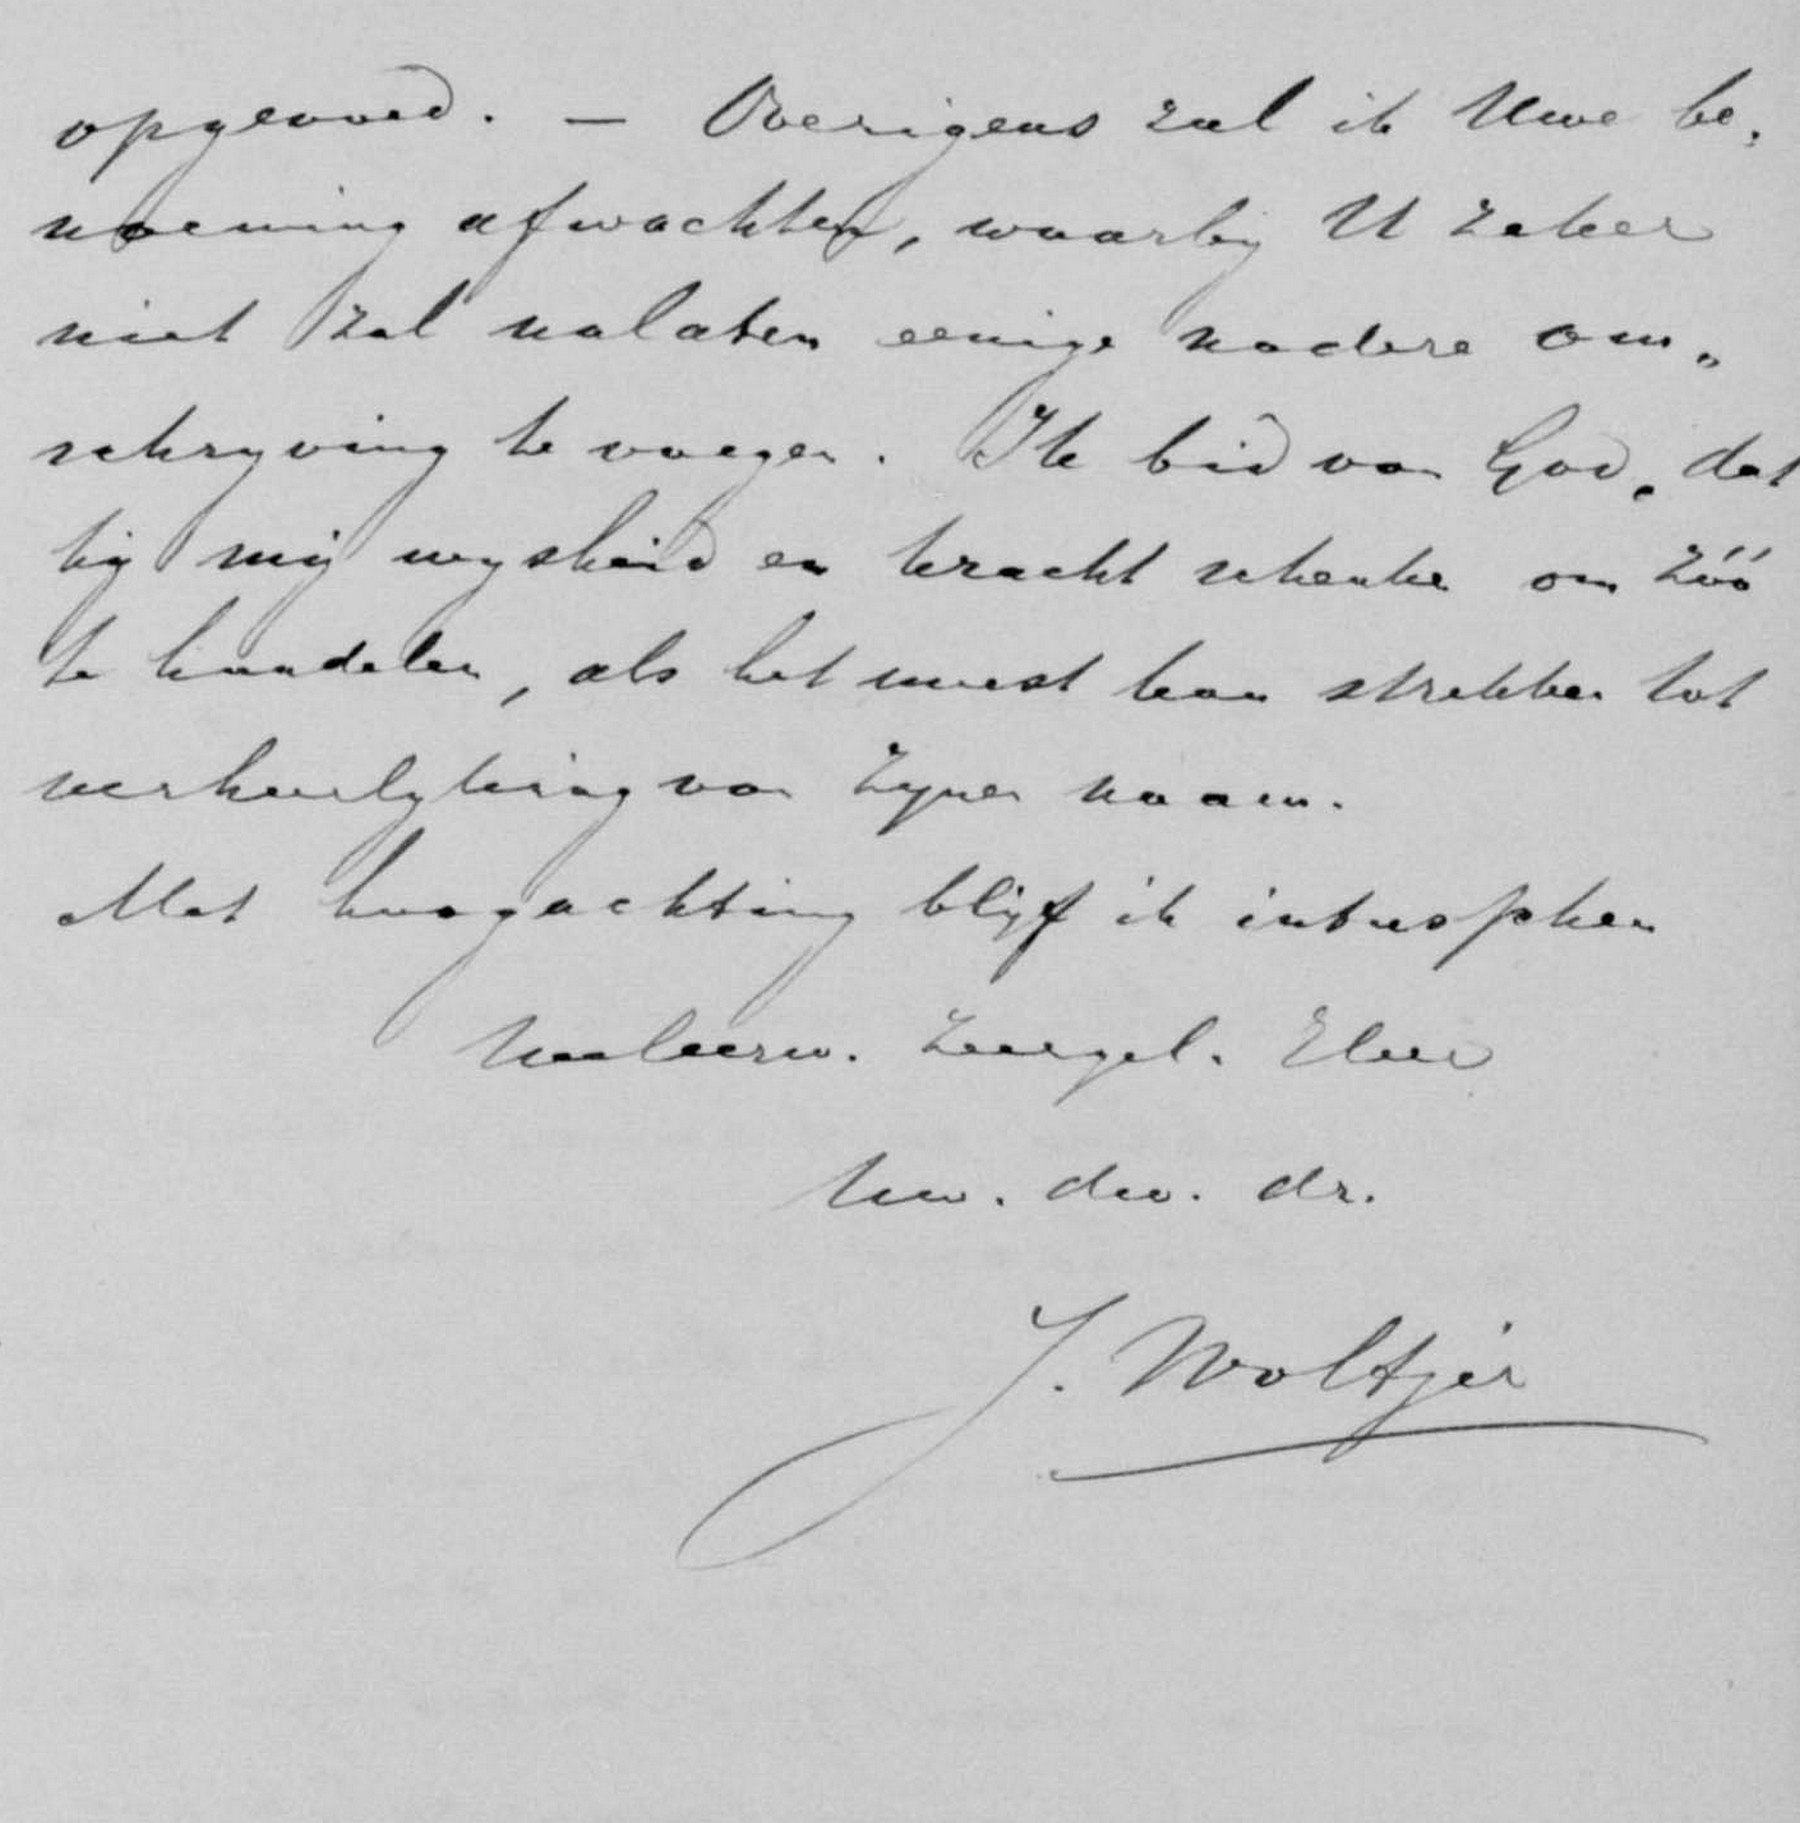 opgevoed. — Overigens zal ik Uwe be„
noeming afwachten, waarbij U zeker
niet zal nalaten eenige nadere om„
schrijving te voegen. Ik bid van God, dat
hij mij wijsheid en kracht schenke om zóó
te handelen, als het meest kan strekken tot
verheerlijking van Zijnen naam.
Met hoogachting blijf ik intusschen
Weleerw. Zeergel. Heer
Uw. dw. dr.
J. Woltjer